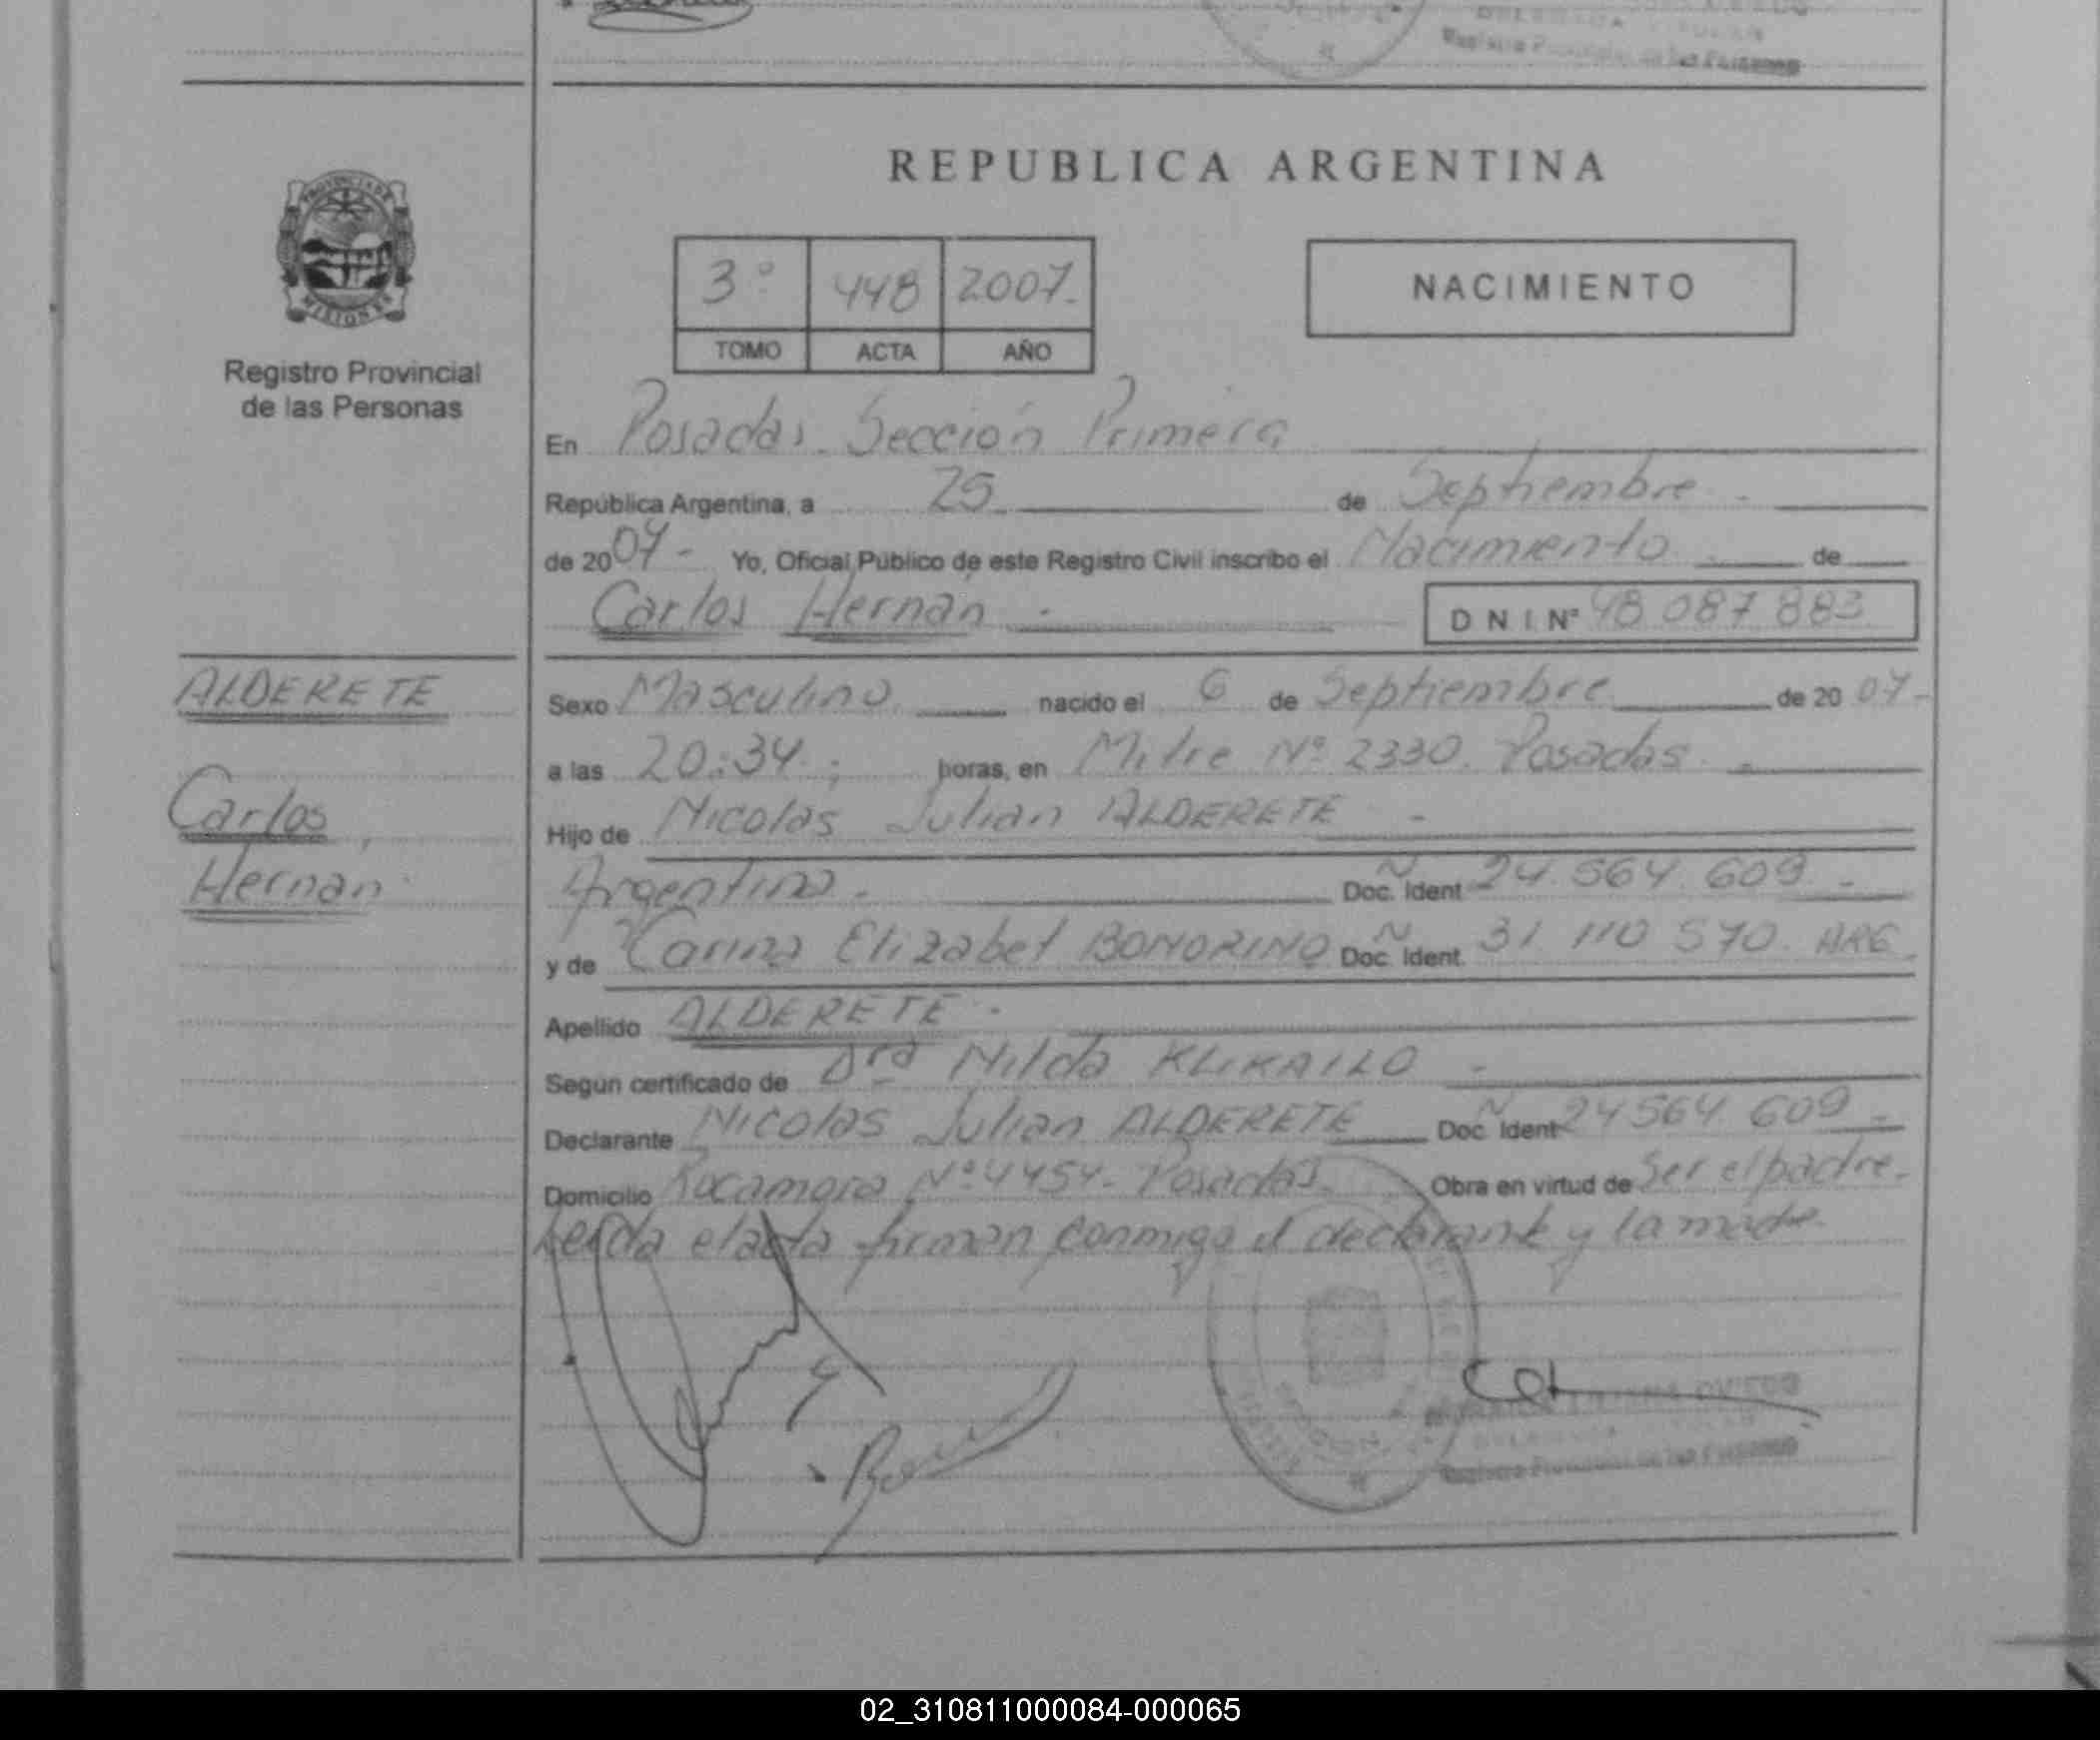 REPUBLICA ARGENTINA
PROVINCIA DE
MISIONES
Registro Provincial
de las Personas
3º 448 2007.
TOMO ACTA AÑO
NACIMIENTO
En Posadas. Sección Primera
República Argentina, a 25 de Septiembre -
de 2007- Yo, Oficial Público de este Registro Civil inscribo el Nacimiento de
Carlos Hernán - DNI Nº 48 087 883
ALDERETE
Carlos,
Hernan
Sexo Masculino nacido el 6 de Septiembre de 2007-
a las 20:34.; horas, en Mitre Nº 2330. Posadas. -
Hijo de Nicolas Julian ALDERETE -
Argentino. Doc. Ident N 24.564.609 -
y de Carina Elizabet BONORINO Doc. Ident. N 31 110 570. ARG.
Apellido ALDERETE -
Según certificado de Dra Nilda KLIKAILO -
Declarante Nicolas Julian ALDERETE Doc. Ident N 24564.609 -
Domicilio Rocamora Nº 4454- Posadas. Obra en virtud de Ser el padre.
Leida el acta firman conmigo el declarante y la madre
Registro Provincial de las Personas
02_310811000084-000065